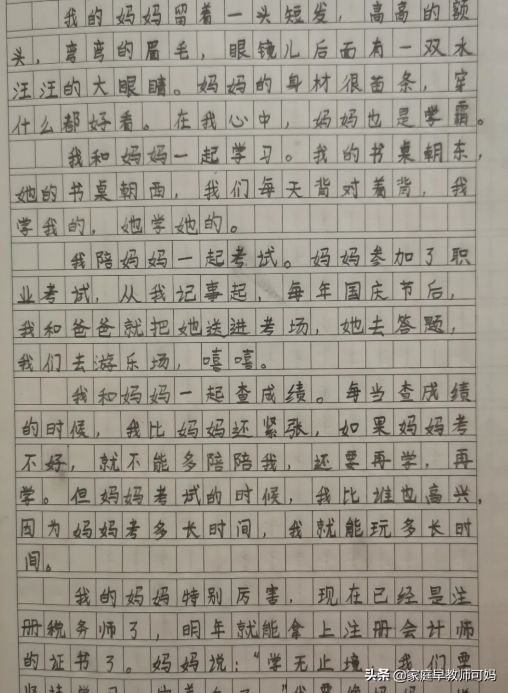 我的妈妈留着一头短发，高高的额
头，弯弯的眉毛，眼镜儿后面有一双水
汪汪的大眼睛。妈妈的身材很苗条，穿
什么都好看。在我心中，妈妈也是学霸。
我和妈妈一起学习。我的书桌朝东，
她的书桌朝西，我们每天背对着背，我
学我的，她学她的。
我陪妈妈一起考试。妈妈参加了职
业考试，从我记事起，每年国庆节后，
我和爸爸就把她送进考场，她去答题，
我们去游乐场，嘻嘻。
我和妈妈一起查成绩。每当查成绩
的时候，我比妈妈还紧张，如果妈妈考
不好，就不能多陪陪我，还要再学，再
学。但妈妈考试的时候，我比谁也高兴，
因为妈妈考多长时间，我就能玩多长时
间。
我的妈妈特别厉害，现在已经是注
册税务师了，明年就能拿上注册会计师
的证书了。妈妈说：“学无止境，我们要
头条 @家庭早教师可妈